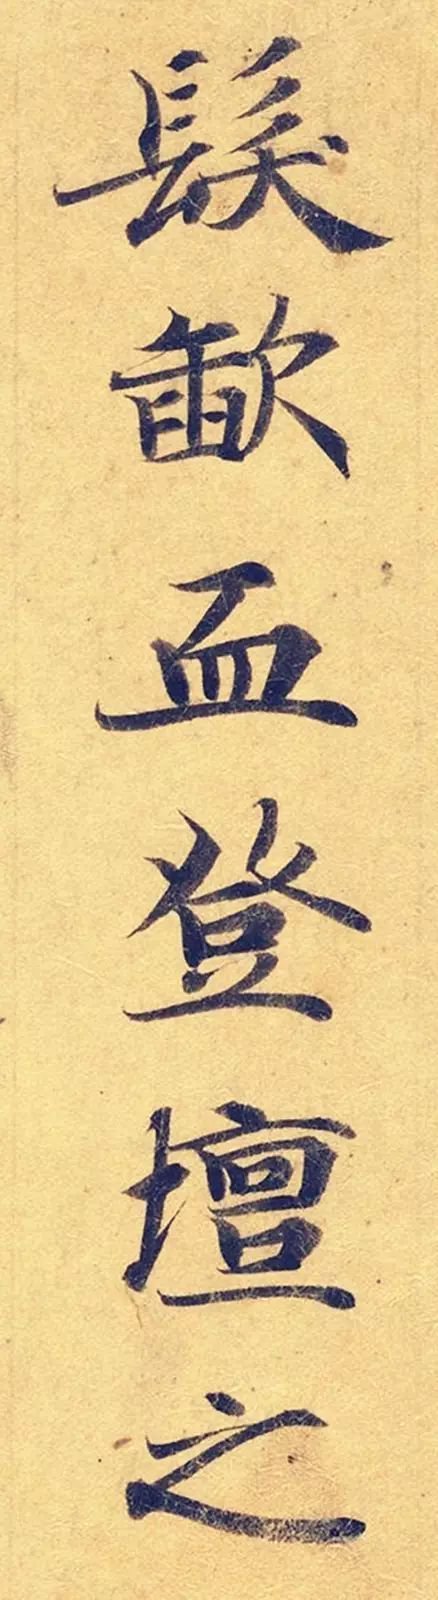 髮歃血登壇之